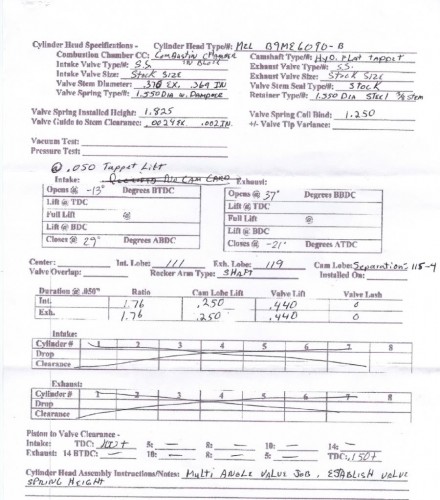 Cylinder Head Specifications - Cylinder Head Type/#: Mel B9ME6090-B
Combustion Chamber CC: Combustion Chamber in Block Camshaft Type/#: Hyd. Flat Tappet
Intake Valve Type/#: S.S. Exhaust Valve Type/#: S.S.
Intake Valve Size: Stock Size Exhaust Valve Size: Stock Size
Valve Stem Diameter: .370 EX. .369 IN Valve Stem Seal Type/#: Stock
Valve Spring Type/#: 1.550 DIA w. Dampner Retainer Type/#: 1.550 DIA Steel 3/8 stem
Valve Spring Installed Height: 1.825 Valve Spring Coil Bind: 1.250
Valve Guide to Stem Clearance: .0024 EX. .002 IN. +/- Valve Tip Variance:
Vacuum Test:
Pressure Test:
@ .050 Tappet Lift
Intake: No Cam Card Exhaust:
Opens @ -13° Degrees BTDC Opens @ 37° Degrees BBDC
Lift @ TDC Lift @ TDC
Full Lift @ Full Lift @
Lift @ BDC Lift @ BDC
Closes @ 29° Degrees ABDC Closes @ -21° Degrees ATDC
Center: Int. Lobe: 111 Exh. Lobe: 119 Cam Lobe: Separation: 115-4
Valve Overlap: Rocker Arm Type: Shaft Installed On:
Duration @ .050" Ratio Cam Lobe Lift Valve Lift Valve Lash
Int. 1.76 .250 .440 0
Exh. 1.76 .250 .440 0
Intake:
Cylinder # 1 2 3 4 5 6 7 8
Drop
Clearance
Exhaust:
Cylinder # 1 2 3 4 5 6 7 8
Drop
Clearance
Piston to Valve Clearance -
Intake: TDC: .100+ 5: — 8: — 10: — 14: —
Exhaust: 14 BTDC: — 10: — 8: — 5: — TDC: .150+
Cylinder Head Assembly Instructions/Notes: Multi Angle Valve Job, Establish Valve
Spring Height